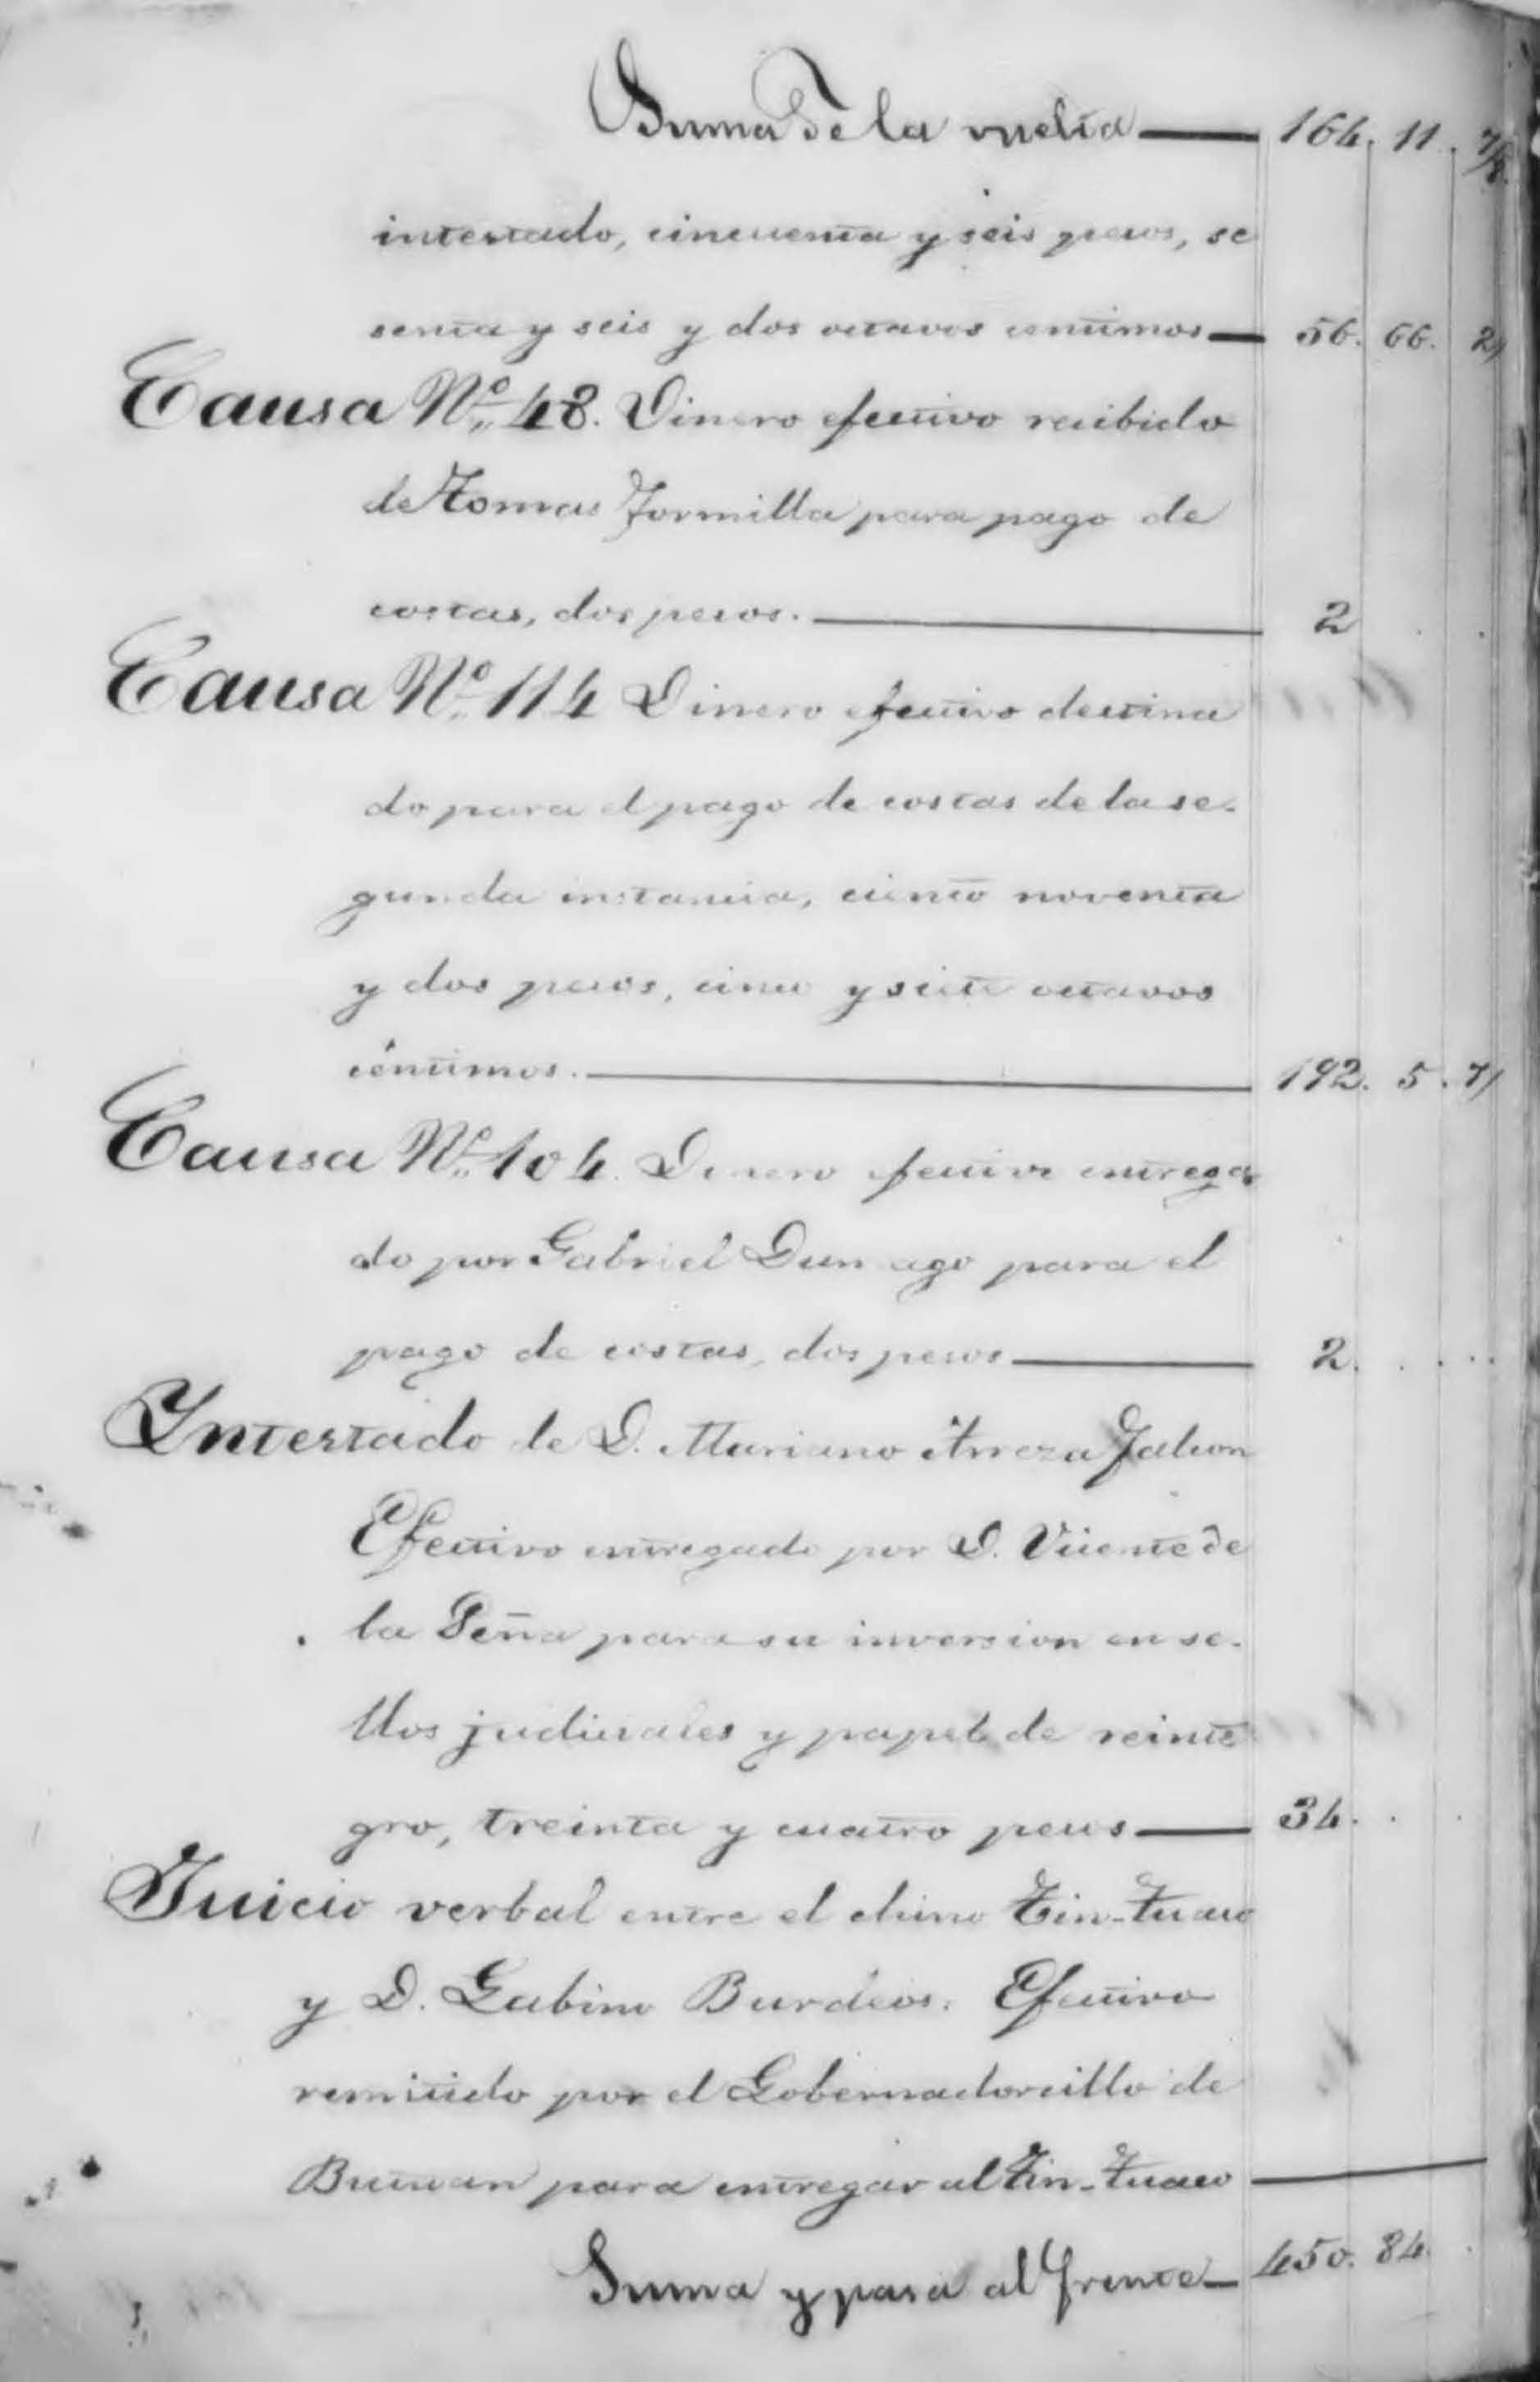 Suma de la vuelta — 164. 11. 7/8.
intestado, cincuenta y seis pesos, se
senta y seis y dos octavos centimos — 56. 66. 2/
Causa Nº 48. Dinero efectivo recibido
de Tomas Jormilla para pago de
costas, dos pesos. — 2 . .
Causa Nº 114 Dinero efectivo destina
do para el pago de costas de la se-
gunda instancia, ciento noventa
y dos pesos, cinco y siete octavos
céntimos. — 192. 5. 7/
Causa Nº 104. Dinero efectivo entrega
do por Gabriel para el
pago de costas, dos pesos — 2. . . .
Intestado de D. Mariano
Efectivo entregado por D. Vicente de
la Peña para su inversion en se-
llos judiciales y papel de reinte
gro, treinta y cuatro pesos — 34. . .
Juicio verbal entre el chino Tin-Tuaco
y D. Gabino Burdeos. Efectivo
remitido por el Gobernadorcillo de
para entregar al Tin-Tuaco —
Suma y pasa al frente — 450. 84.